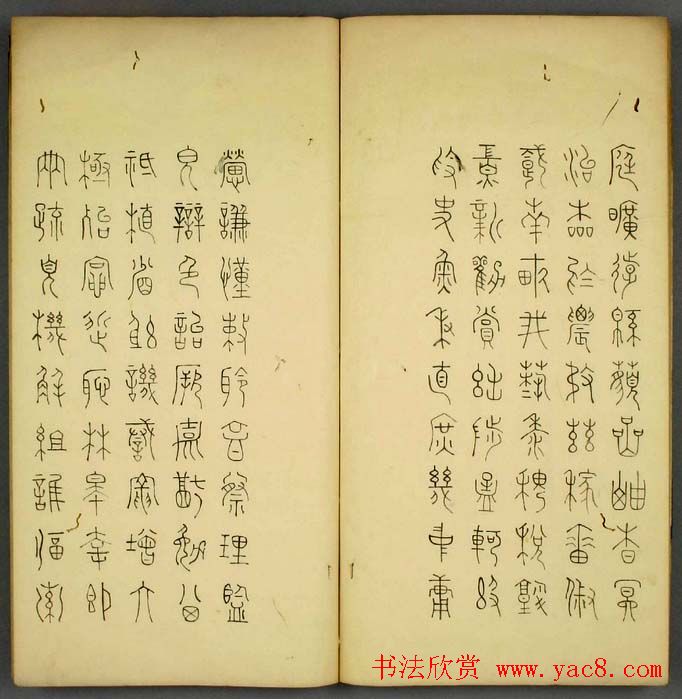 庭曠遠綿邈巖岫杳冥
治本於農務茲稼穡俶
載南畝我藝黍稷稅熟
貢新勸賞黜陟孟軻敦
素史魚秉直庶幾中庸
勞謙謹敕聆音察理鑑
貌辯色貽厥嘉猷勉其
祗植省躬譏誡寵增抗
極殆辱近恥林皋幸即
兩疏見機解組誰逼索
书法欣赏 www.yac8.com